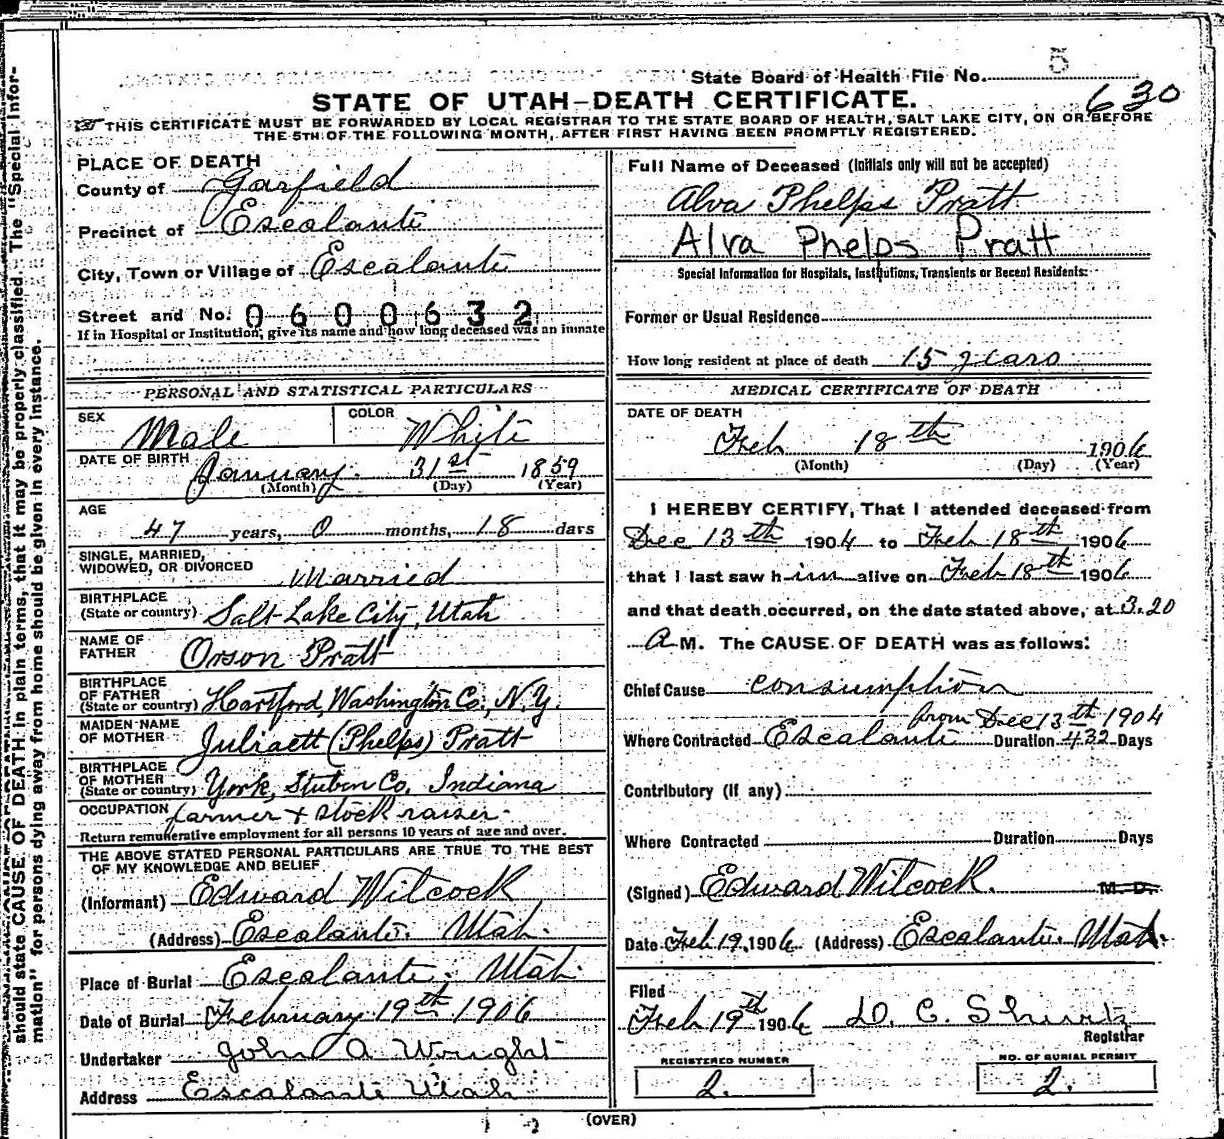 State Board of Health File No. 5
630
STATE OF UTAH—DEATH CERTIFICATE.
THIS CERTIFICATE MUST BE FORWARDED BY LOCAL REGISTRAR TO THE STATE BOARD OF HEALTH, SALT LAKE CITY, ON OR BEFORE
THE 5TH OF THE FOLLOWING MONTH, AFTER FIRST HAVING BEEN PROMPTLY REGISTERED.
should state CAUSE OF DEATH in plain terms, that it may be properly classified. The "Special Infor-
mation" for persons dying away from home should be given in every instance.
PLACE OF DEATH
County of Garfield
Precinct of Escalante
City, Town or Village of Escalante
Street and No. 0600632
If in Hospital or Institution, give its name and how long deceased was an inmate
PERSONAL AND STATISTICAL PARTICULARS
SEX Male COLOR White
DATE OF BIRTH January 31st 1859
(Month) (Day) (Year)
AGE
47 years, 0 months, 18 days
SINGLE, MARRIED,
WIDOWED, OR DIVORCED Married
BIRTHPLACE
(State or country) Salt Lake City, Utah
NAME OF
FATHER Orson Pratt
BIRTHPLACE
OF FATHER
(State or country) Hartford, Washington Co., N.Y.
MAIDEN NAME
OF MOTHER Juliaett (Phelps) Pratt
BIRTHPLACE
OF MOTHER
(State or country) York, Stuben Co. Indiana
OCCUPATION farmer + stock raiser
Return remunerative employment for all persons 10 years of age and over.
THE ABOVE STATED PERSONAL PARTICULARS ARE TRUE TO THE BEST
OF MY KNOWLEDGE AND BELIEF
(Informant) Edward Witcock
(Address) Escalante. Utah.
Place of Burial Escalante, Utah.
Date of Burial February 19th 1906
Undertaker John A Wright
Address Escalante Utah
Full Name of Deceased (Initials only will not be accepted)
Alva Phelps Pratt
Alva Phelps Pratt
Special Information for Hospitals, Institutions, Transients or Recent Residents:
Former or Usual Residence
How long resident at place of death 15 years
MEDICAL CERTIFICATE OF DEATH
DATE OF DEATH
Feb 18th 1906
(Month) (Day) (Year)
I HEREBY CERTIFY, That I attended deceased from
Dec 13th 1904 to Feb 18th 1906
that I last saw him alive on Feb 18th 1906
and that death occurred, on the date stated above, at 3.20
A M. The CAUSE OF DEATH was as follows:
Chief Cause consumption
from Dec 13th 1904
Where Contracted Escalante Duration 432 Days
Contributory (if any)
Where Contracted Duration Days
(Signed) Edward Witcock. M. D.
Date Feb 19, 1906 (Address) Escalante. Utah.
Filed
Feb 19th 1906 D. C. Shurtz
Registrar
REGISTERED NUMBER
2.
NO. OF BURIAL PERMIT
2.
(OVER)